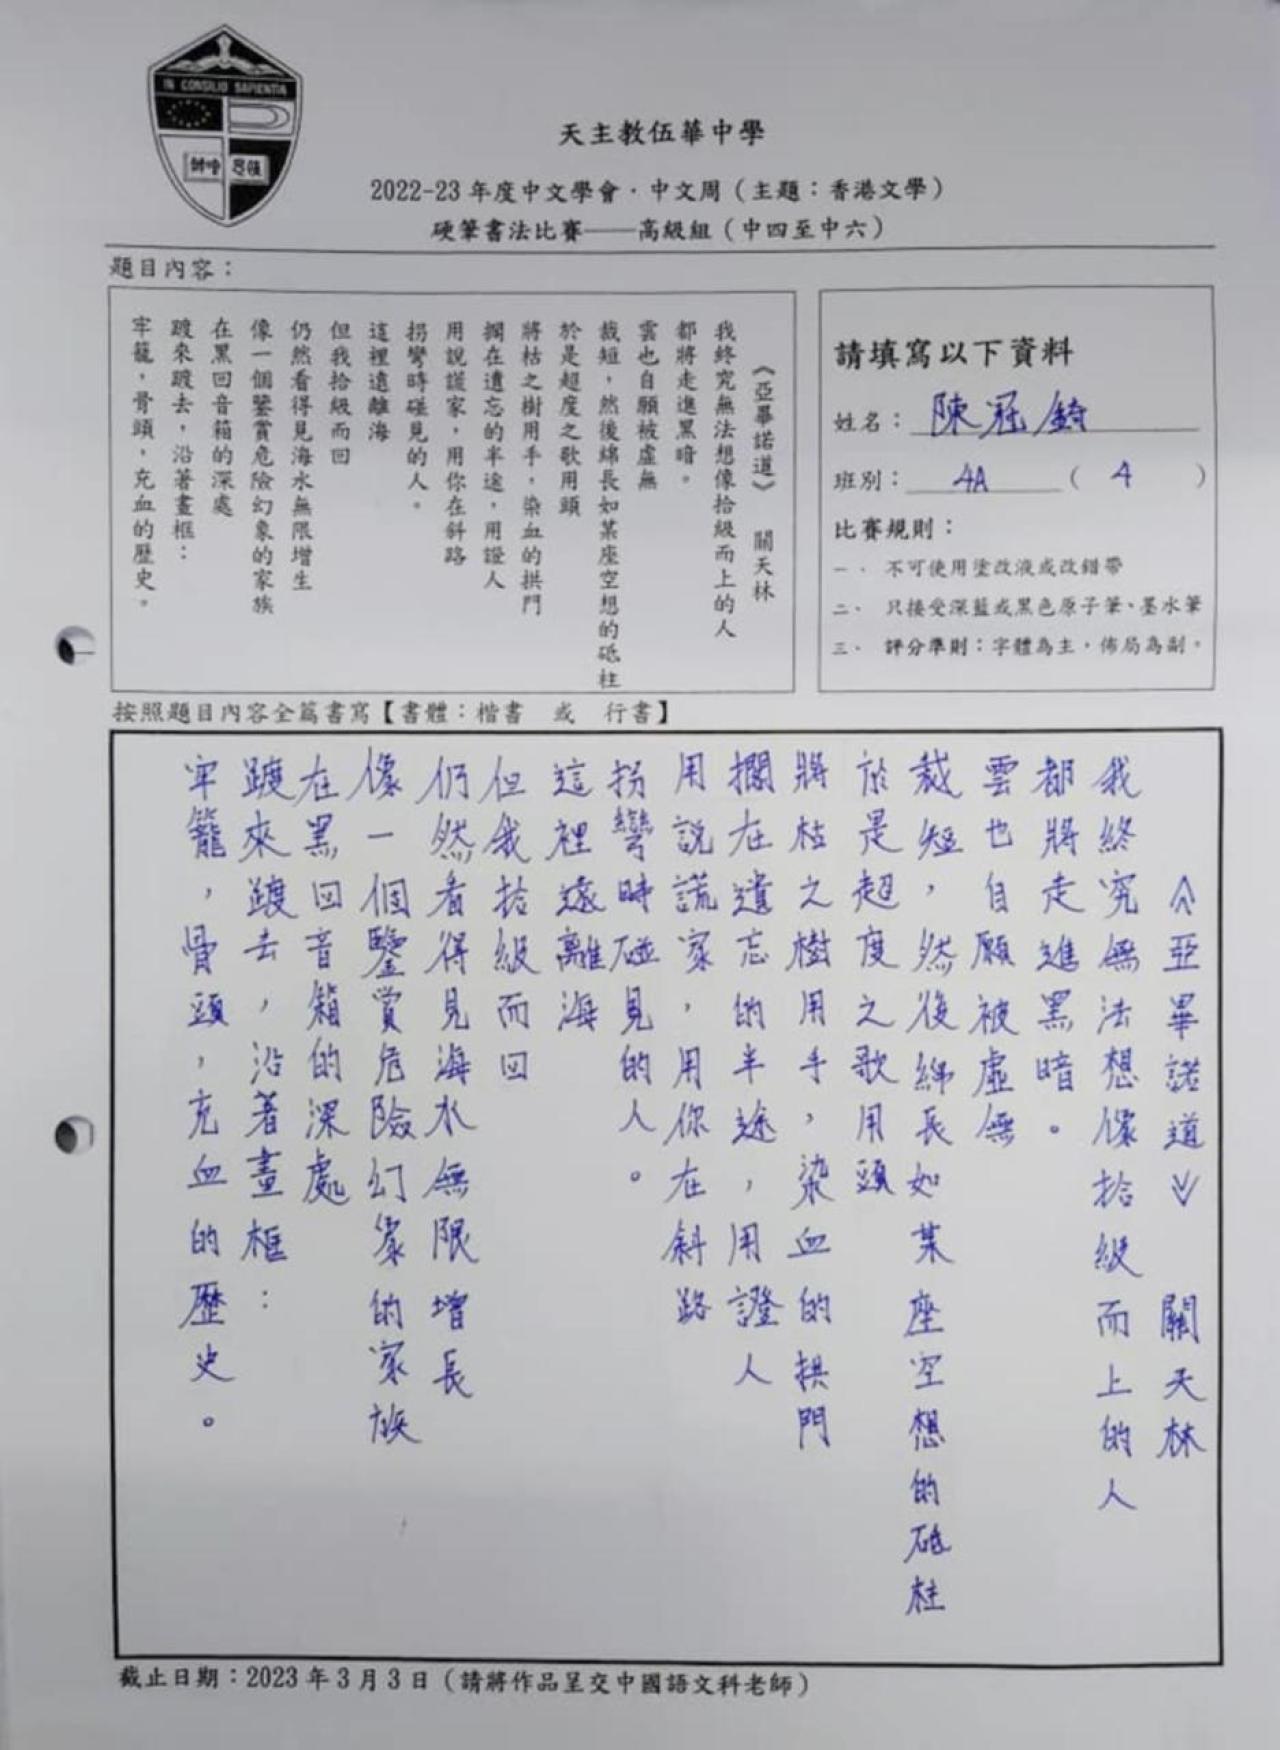 IN CONSILIO SAPIENTIA
天主教伍華中學
2022-23 年度中文學會．中文周（主題：香港文學）
硬筆書法比賽——高級組（中四至中六）
題目內容：
《亞畢諾道》　關天林
我終究無法想像拾級而上的人
都將走進黑暗。
雲也自願被虛無
裁短，然後綿長如某座空想的砥柱
於是超度之歌用頭
將枯之樹用手，染血的拱門
擱在遺忘的半途，用證人
用說謊家，用你在斜路
拐彎時碰見的人。
這裡遠離海
但我拾級而回
仍然看得見海水無限增生
像一個鑒賞危險幻象的家族
在黑回音箱的深處
踱來踱去，沿著畫框：
牢籠，骨頭，充血的歷史。
請填寫以下資料
姓名：陳冠錡
班別：4A（4）
比賽規則：
一． 不可使用塗改液或改錯帶
二． 只接受深藍或黑色原子筆、墨水筆
三． 評分準則：字體為主，佈局為副。
按照題目內容全篇書寫【書體：楷書　或　行書】
《亞畢諾道》　關天林
我終究無法想像拾級而上的人
都將走進黑暗。
雲也自願被虛無
裁短，然後綿長如某座空想的砥柱
於是超度之歌用頭
將枯之樹用手，染血的拱門
擱在遺忘的半途，用證人
用說謊家，用你在斜路
拐彎時碰見的人。
這裡遠離海
但我拾級而回
仍然看得見海水無限增長
像一個鑒賞危險幻象的家族
在黑回音箱的深處
踱來踱去，沿著畫框：
牢籠，骨頭，充血的歷史。
截止日期：2023 年 3 月 3 日（請將作品呈交中國語文科老師）